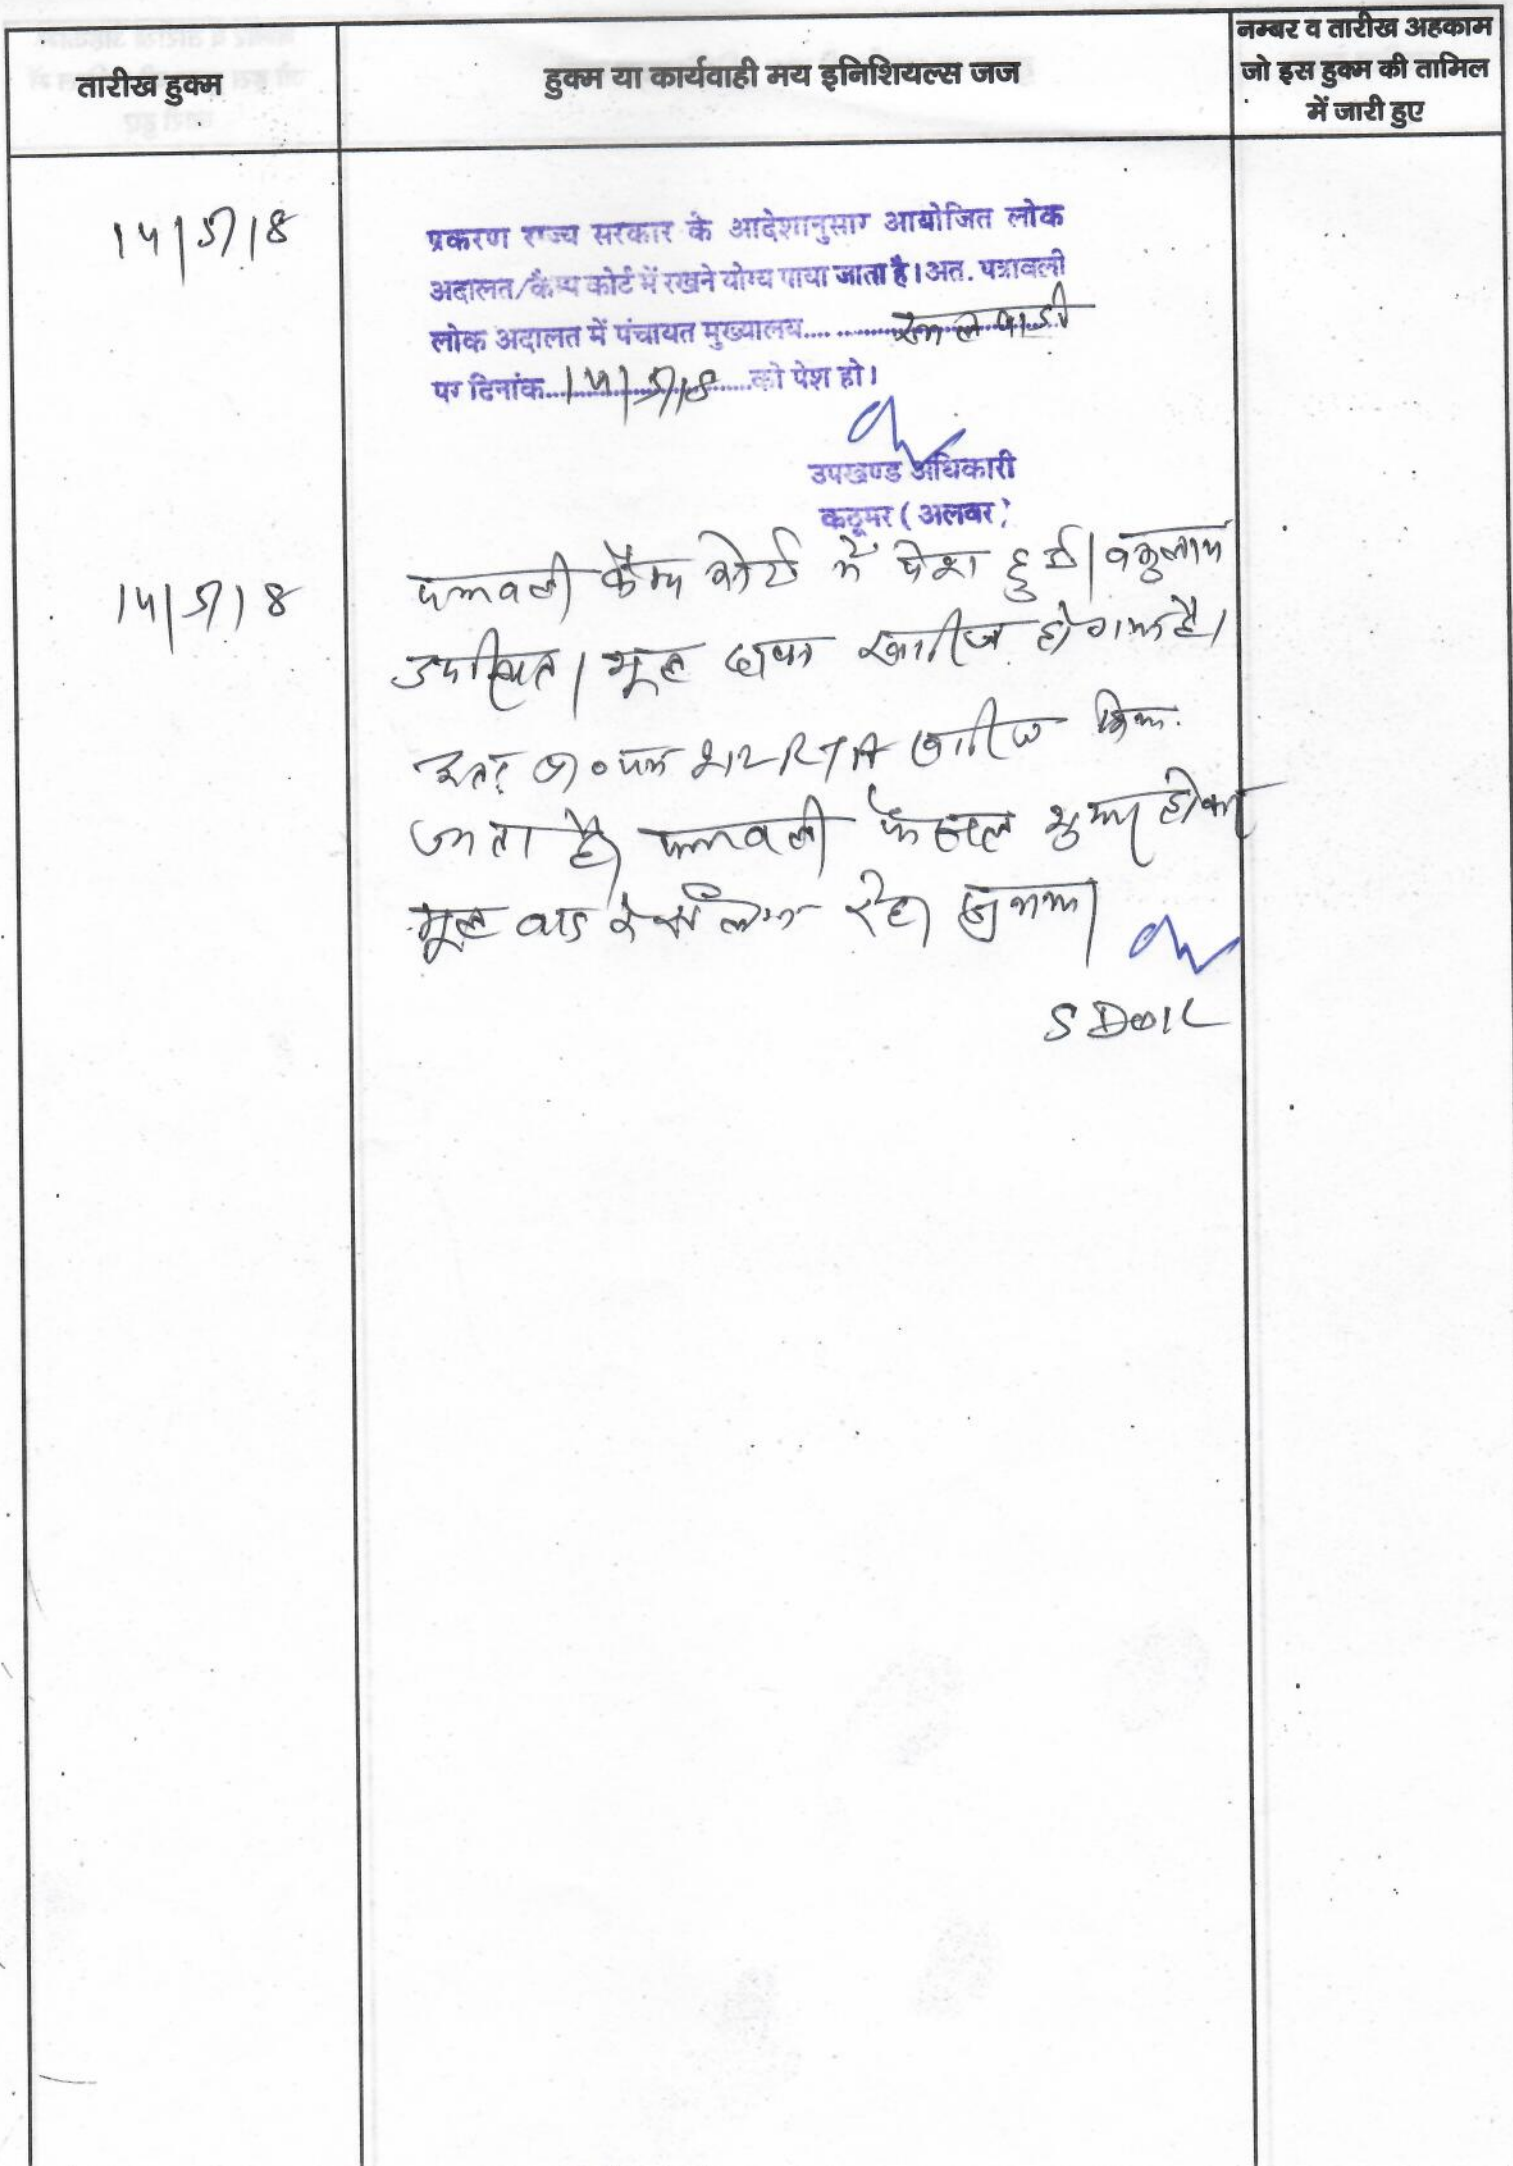 तारीख हुक्म
हुक्म या कार्यवाही मय इनिशियल्स जज
नम्बर व तारीख अहकाम
जो इस हुक्म की तामिल
में जारी हुए
14/5/18
प्रकरण राज्य सरकार के आदेशानुसार आयोजित लोक
अदालत/कैम्प कोर्ट में रखने योग्य पाया जाता है। अत. पत्रावली
लोक अदालत में पंचायत मुख्यालय....
पर दिनांक....14/5/18....को पेश हो।
उपखण्ड अधिकारी
कठूमर (अलवर)
14/5/18
पत्रावली कैम्प कोर्ट में पेश हुई। वकुलाय
उपस्थित। मूल दावा खारिज हो गया है।
अतः प्रा०पत्र खारिज किया
जाता है। पत्रावली फैसल शुमार होकर
मूल वाद के रहे।